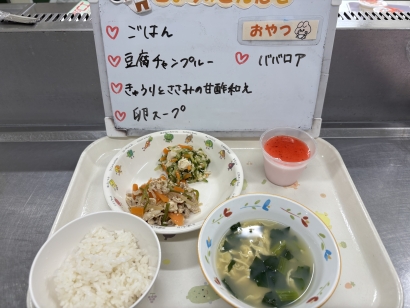 ごはん
おやつ
豆腐チャンプルー
ババロア
きゅうりとささみの甘酢和え
卵スープ